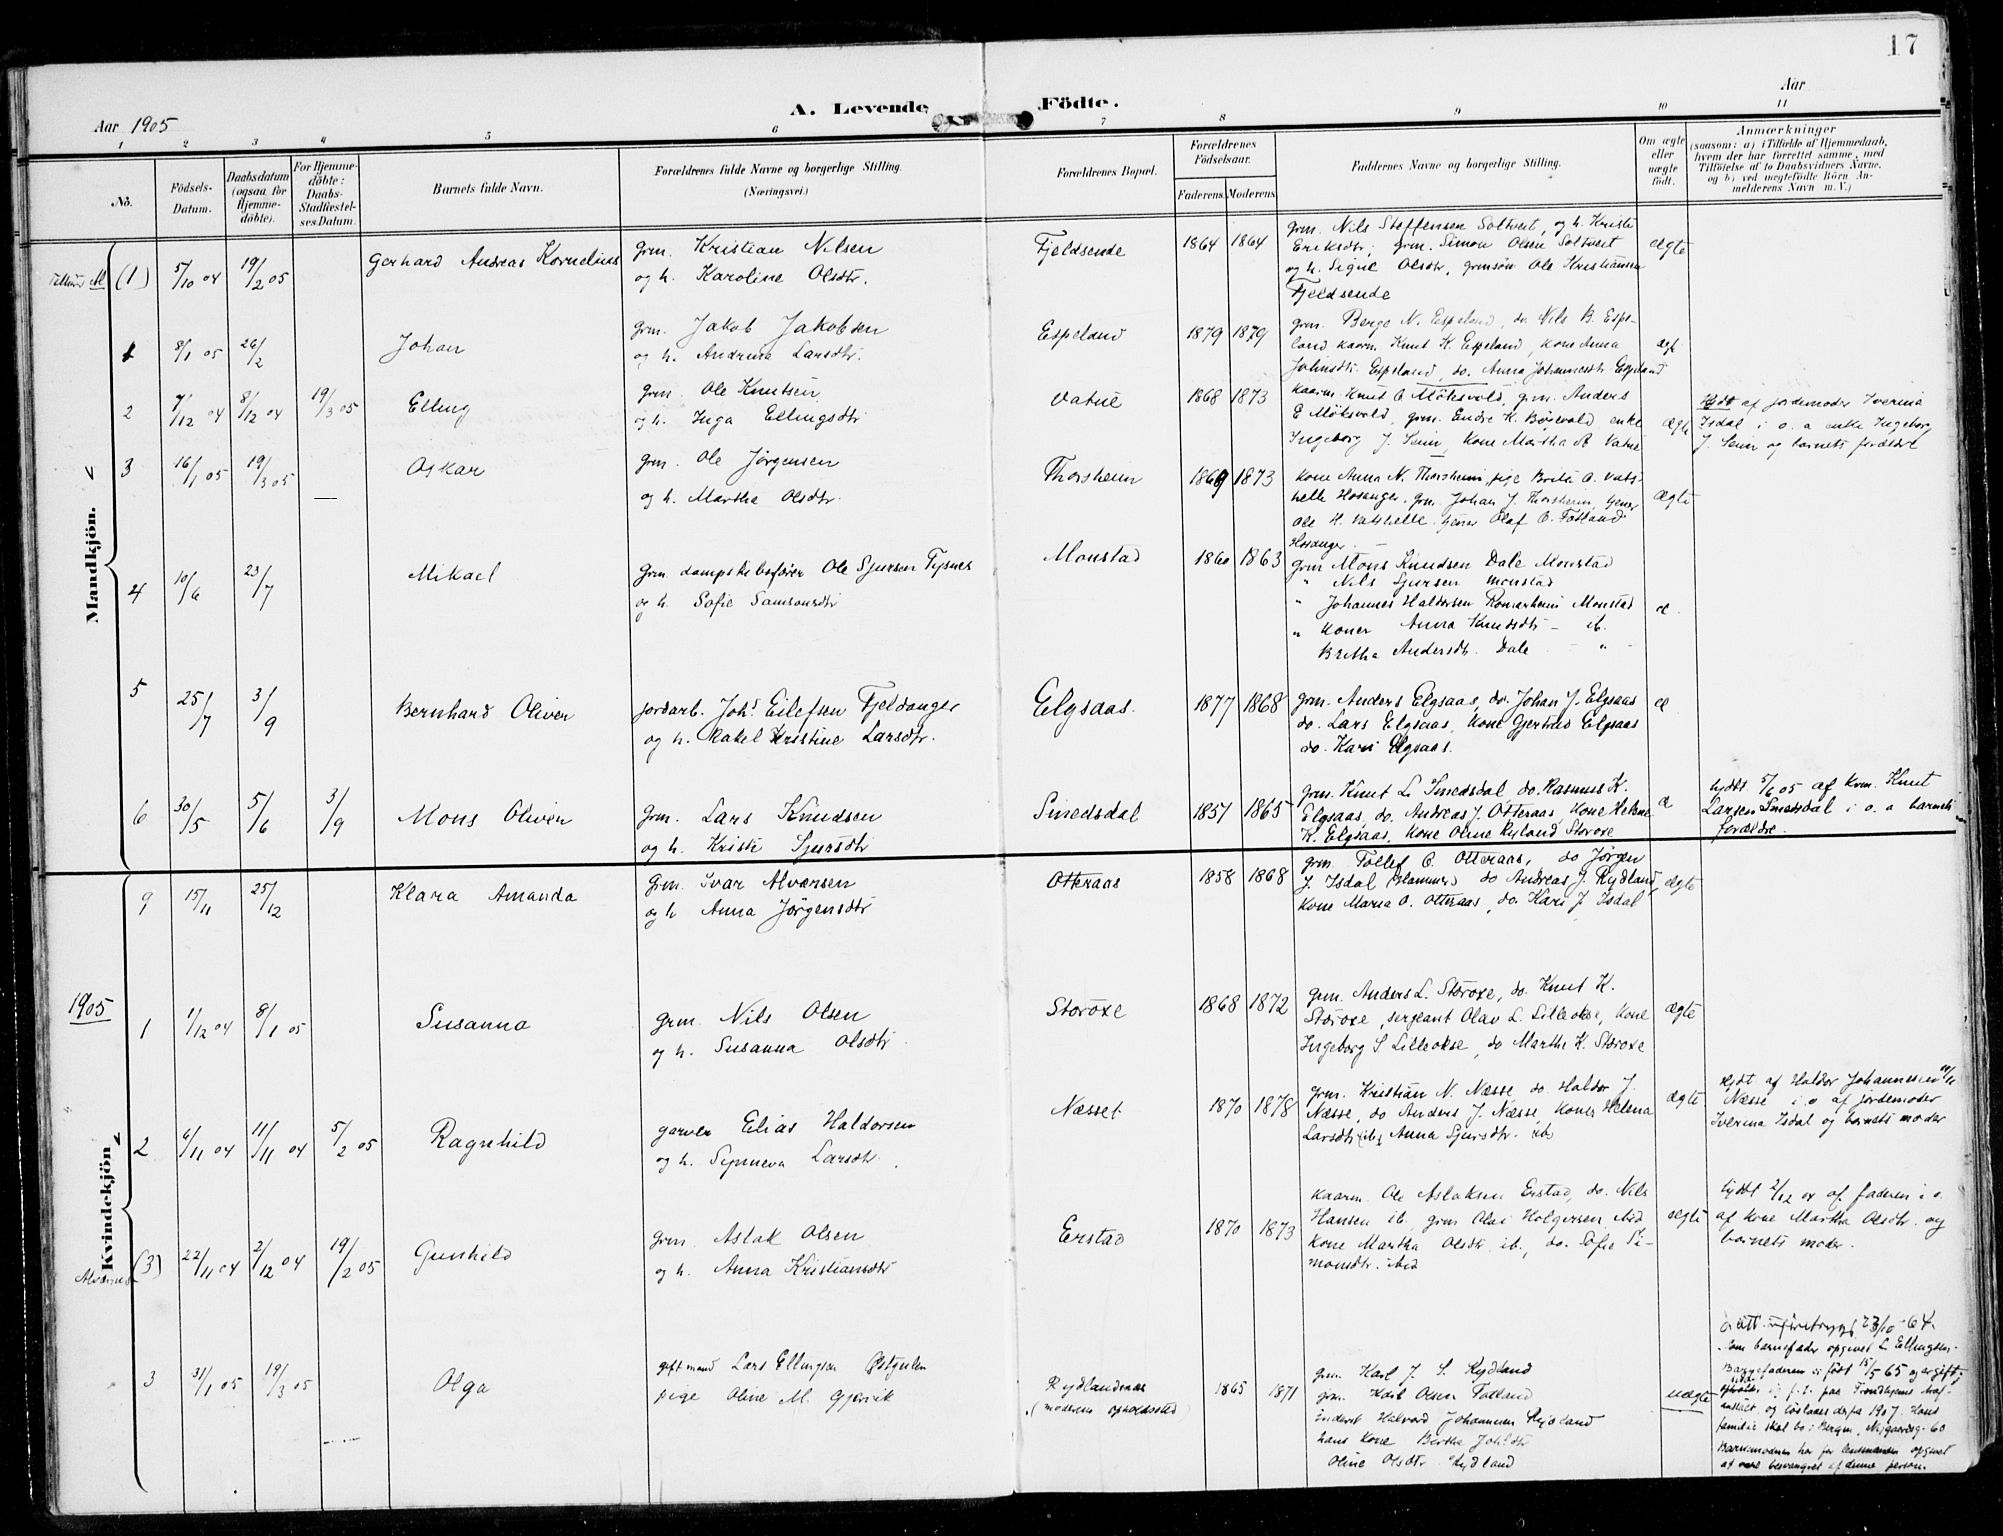 17
A. Levende Födte.
Aar 1905
Aar
1 2 3 4 5 6 7 8 9 10 11
No.
Födsels-Datum.
Daabsdatum (ogsaa for Hjemme-döbte).
For Hjemme-döbte: Daabs-Stadfæstel-ses Datum.
Barnets fulde Navn.
Forældrenes fulde Navne og borgerlige Stilling.
(Næringsvei.)
Forældrenes Bopæl.
Forældrenes Födselsaar.
Faderens. Moderens.
Faddernes Navne og borgerlige Stilling.
Om ægte eller uægte födt.
Anmærkninger
(saasom: a) i Tilfælde af Hjemmedaab,
hvem der har forrettet samme, med
Tilföielse af to Daabsvidners Navne,
og b) ved uægtefödte Börn An-
melderens Navn m. V.)
Mandkjön.
(1) 5/10 04 19/2 05 Gerhard Andreas Kornelius
grm. Kristian Nilsen
og h. Karoline Olsdtr.
Fjeldsende 1864 1864
grm. Nils Steffensen Soltveit, og h. Kristi
Eriksdtr, grm. Simon Olsen Soltveit
og h. Signe Olsdtr, grmsøn Ole Kristiansen
Fjeldsende
ægte
1 8/1 05 26/2 Johan
grm. Jakob Jakobsen
og h. Andrina Larsdtr.
Espeland 1879 1879
grm. Berge N. Espeland, do. Nils B. Espe-
land kaarm. Knut K. Espeland, kone Anna
Johnsdtr Espeland, do. Anna Johannesdtr Espeland
2 7/12 04 8/12 04 19/3 05 Elling
grm. Ole Knutsen
og h. Inga Ellingsdtr
Vatne 1868 1873
kaarm. Knut O Möksvold, grm. Anders
E Möksvold, grm. Endre K. Börsvold, enke
Ingeborg J. Seim, kone Martha A. Vatne
ægte
af jordemoder Iverina
Isdal i o. a enke Ingeborg
J. Seim og barnets forældre
3 16/1 05 19/3 05 Oskar
grm. Ole Jørgensen
og h. Martha Olsdtr.
Thorsheim 1869 1873
kone Anna N. Thorsheim, pige Brita O. Vats-
helle Hosanger, grm. Johan J. Thorsheim, tjener
Ole H. Vatshelle, tjener Olaf O. Fotland
Hosanger.
ægte
4 10/6 23/7 Mikael
grm. dampskibsfører Ole Sjursen Tysnes
og h. Sofie Samsonsdtr
Monstad 1860 1863
grm Mons Knudsen Dale Monstad
" Nils Sjursen monstad
" Johannes Haldorsen Romarheim Monstad
" koner Anna Knudsdtr - ib.
Britha Andersdtr. Dale "
æ.
5 25/7 3/9 Bernhard Oliver
jordarb. Johs Eilefsen Fjeldanger
og h. Rakel Kristine Larsdtr.
Elgsaas. 1877 1868
grm. Anders Elgsaas, do. Johan J. Elgsaas
do. Lars Elgsaas, kone Gjertrud Elgsaas
do. Kari Elgsaas.
æ
6 30/5 5/6 3/9 Mons Oliver
grm. Lars Knudsen
og h. Kristi Sjursdtr
Smedsdal 1857 1865
grm. Knut L Smedsdal do. Rasmus K.
Elgsaas, do. Andreas J. Otteraas, kone Helene
K. Elgsaas, kone Oline Rydland Storoxe
æ
hjdt 5/6 05 af kvm. Knut
Larsen Smedsdal i o. a barnets
forældre.
Kvindekjön
9 15/11 25/12 Klara Amanda
grm. Ivar Alversen
og h Anna Jørgensdtr
Otteraas 1858 1868
grm. Tollef O. Otteraas, do Jørgen
J. Isdal (Hammer) do Andreas J. Rydland
kone Maria O. Otteraas, do. Kari J. Isdal
ægte
1905
1 1/12 04 8/1 05 Susanna
grm. Nils Olsen
og h. Susanna Olsdtr
Storoxe 1868 1872
grm. Anders L. Storoxe, do. Knut K.
Storoxe, sergeant Olav L. Lilleokse, kone
Ingeborg S Lilleokse, do Marthe K. Storoxe
ægte
2 6/11 04 11/11 04 5/2 05 Ragnhild
garver Elias Haldorsen
og h. Synneva Larsdtr.
Næsset 1870 1878
grm. Kristian N. Næsse, do Haldor J.
Næsse, do Anders J. Næsse, koner Helena
Larsdtr ib, Anna Sjursdtr. ib
ægte
hjdt af Haldor Johannesen
Næsse i o af jordemoder
Iverina Isdal og barnets moder
(3) 22/11 04 2/12 04 19/2 05 Gunhild
grm. Aslak Olsen
og h. Anna Kristiansdtr
Erstad 1870 1873
kaarm. Ole Aslaksen Erstad, do. Nils
Hansen ib., grm Olai Holgersen ibid
kone Martha Olsdtr. ib., do. Sofie Si-
monsdtr. ibid
ægte
hjdbt 2/12 04 af faderen i o.
af kone Martha Olsdtr. og
barnets moder.
3 31/1 05 19/3 05 Olga
gift mand Lars Ellingsen Østgulen
pige Oline M. Gjervik
Rydlandsnes
(moderens opholdssted) 1865 1871
grm. Karl J. S. Rydland
grm. Karl Olsen Fotland
inderst Halvard Johannesen Rydland
hans kone Bertha Johsdtr
Oline Olsdtr Rydland
uægte
Som barnefader opgivet L Ellingsen.
Barnefaderen er født 15/5 65
og løslades derfra 1907. Hans
familie skal bo i Bergen, Nygaardsg. 60
Barnemoderen har for lensmanden opgivet
at være besvangret af denne person.